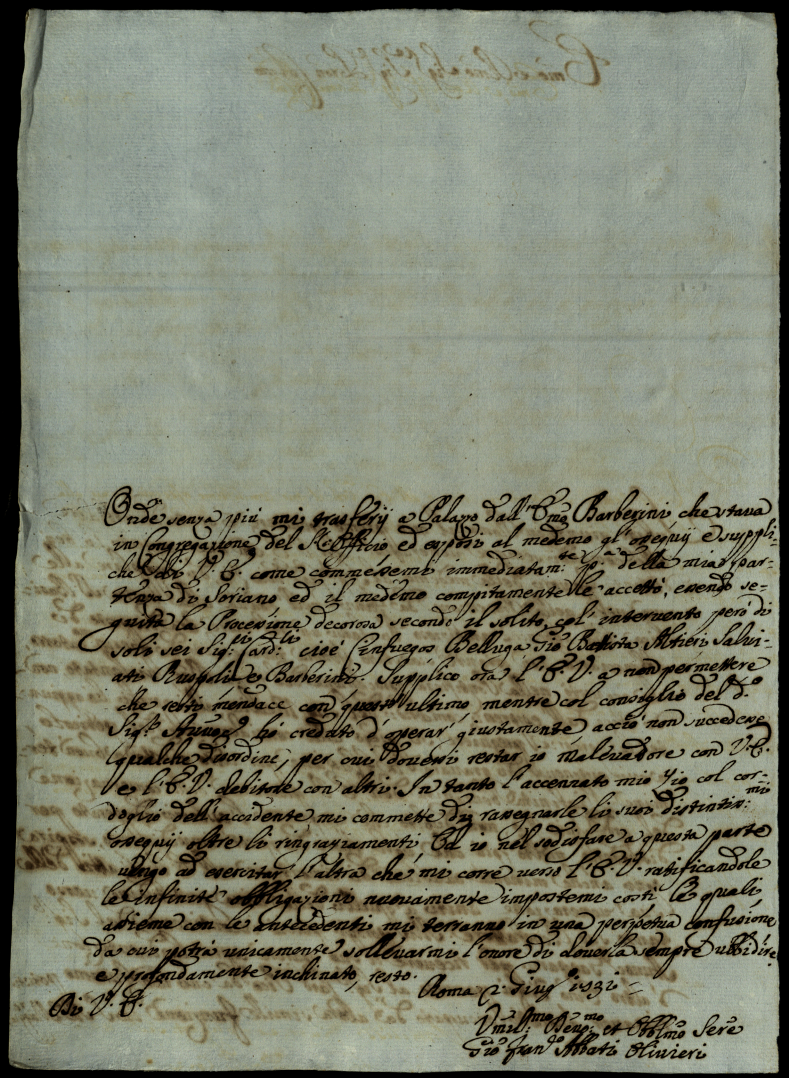 Onde senza più mi trasferij a Palazzo dall'Emo Barberini che stava
in Congregazione del St Officio ed esposi al medemo gl'ossequij e suppli-
che di V. E. come commessemi immediatamte pa della mia par-
tenza di Soriano ed il medemo compitamente le accettò, essendo se-
guita la Processione decorosa secondo il solito, col' intervento però di
soli sei Sigri Cardli cioè Cinfuegos Belluga Gio Battista Altieri Salvi-
ati Ruspoli e Barberini. Supplico ora l'E. V. a non permettere
che resti mendace con questo ultimo mentre col consiglio del do
Sigr hò creduto d'operar' giustamente acciò non succedesse
qualche disordine, per cui dovessi restar io malevadore con V. E.
e l'E. V. debitore con altri. In tanto l'accennato mio Zio col cor-
doglio dell'accidente mi commette di rassegnarle li suoi distintissmi
ossequij oltre li ringraziamenti, Ed io nel sodisfare a questa parte
vengo ad esercitar l'altra che mi corre verso l'E. V. ratificandole
le infinite obbligazioni nuovamente impostemi costì le quali
assieme con le antecedenti mi terranno in una perpetua confusione
da cui potrà unicamente sollevarmi l'onore di doverla sempre ubbidire
e profondamente inchinato, resto.
Roma 2 Giugo 1731
Di V. E.
Vmilmo Devmo et Obblmo Serre
Gio Frando Abbati Olivieri